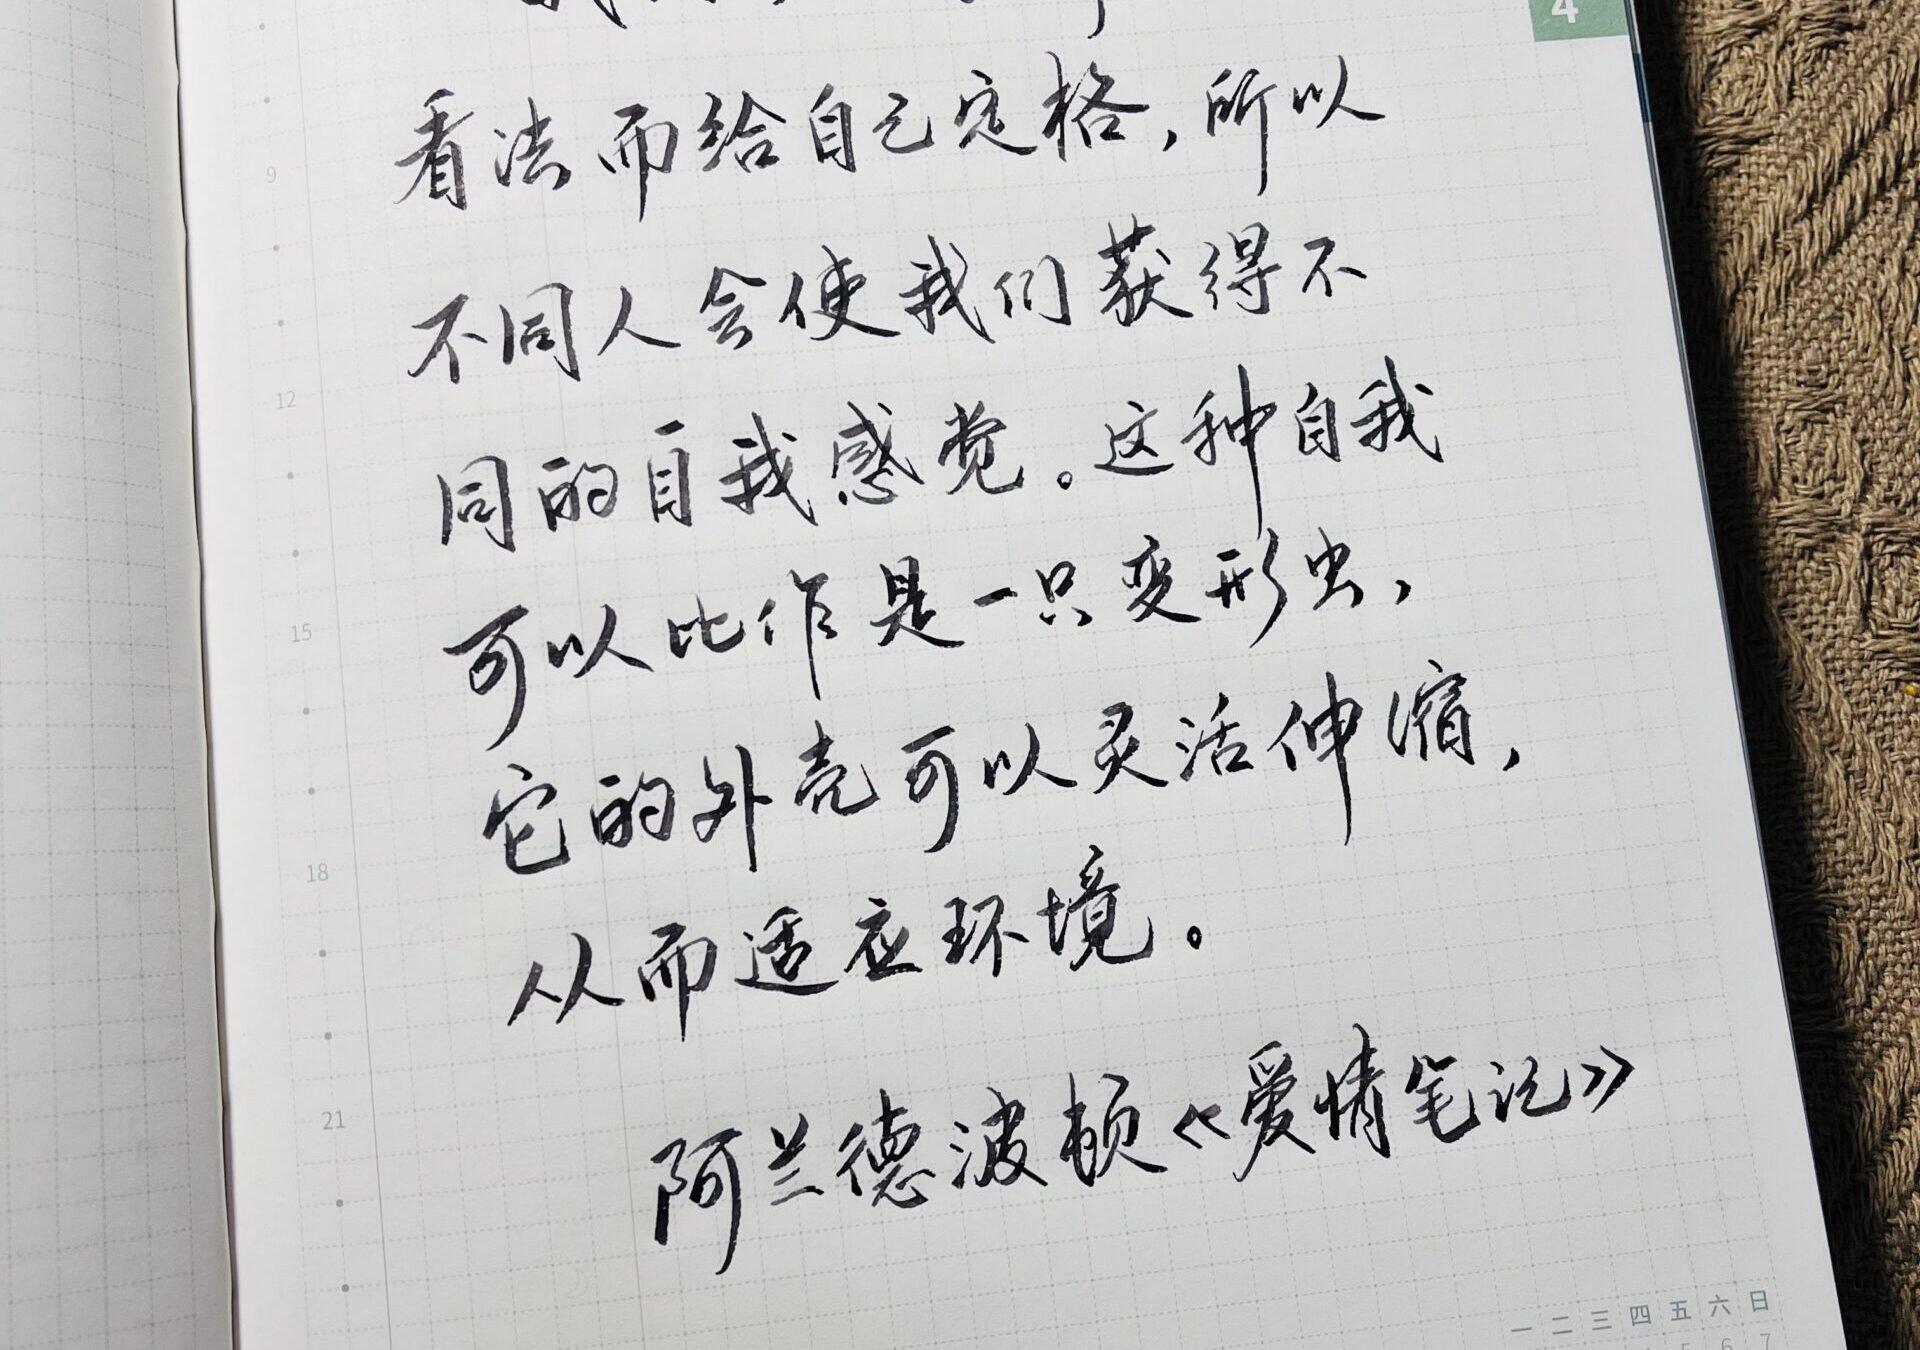 4
看法而给自己定格，所以
9
不同人会使我们获得不
12
同的自我感觉。这种自我
可以比作是一只变形虫，
15
它的外壳可以灵活伸缩，
18
从而适应环境。
21
阿兰德波顿《爱情笔记》
一 二 三 四 五 六 日
5 6 7